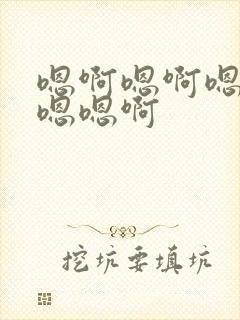 嗯啊嗯啊嗯
嗯嗯啊
挖坑要填坑